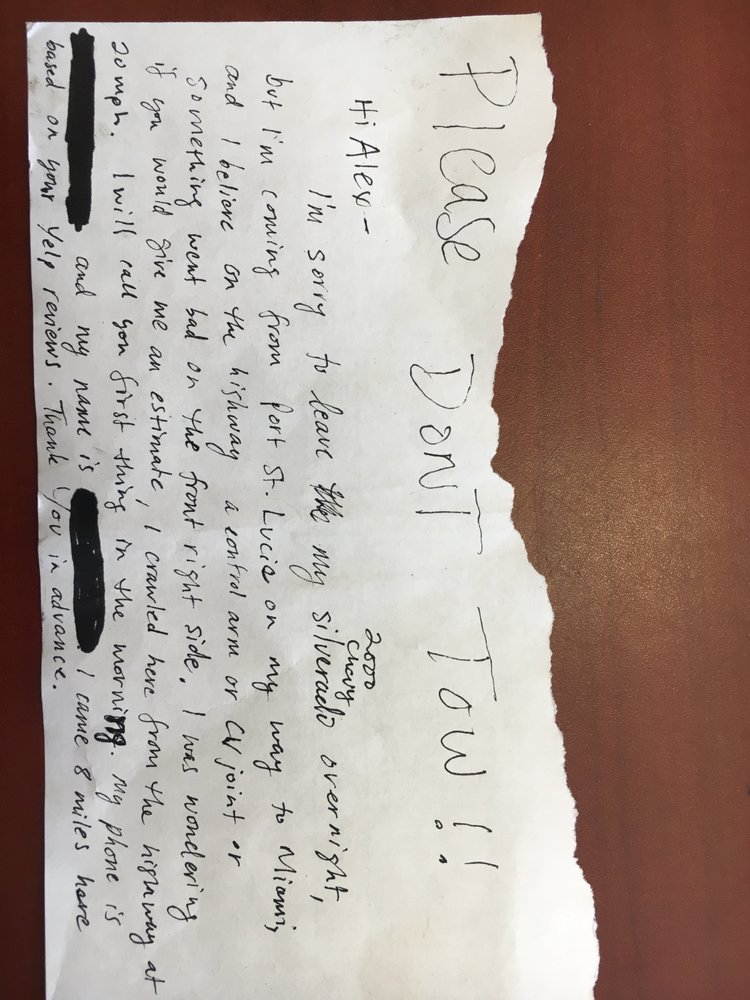 Please Dont Tow!!
Hi Alex-
2000
Chevy
I'm sorry to leave my silverado overnight,
but I'm coming from Port St. Lucie on my way to Miami,
and I believe on the highway a control arm or CV joint or
something went bad on the front right side. I was wondering
if you would give me an estimate, I crawled here from the highway at
20mph. I will call you first thing in the morning. My phone is
and my name is . I came 8 miles here
based on your Yelp reviews. Thank you in advance.